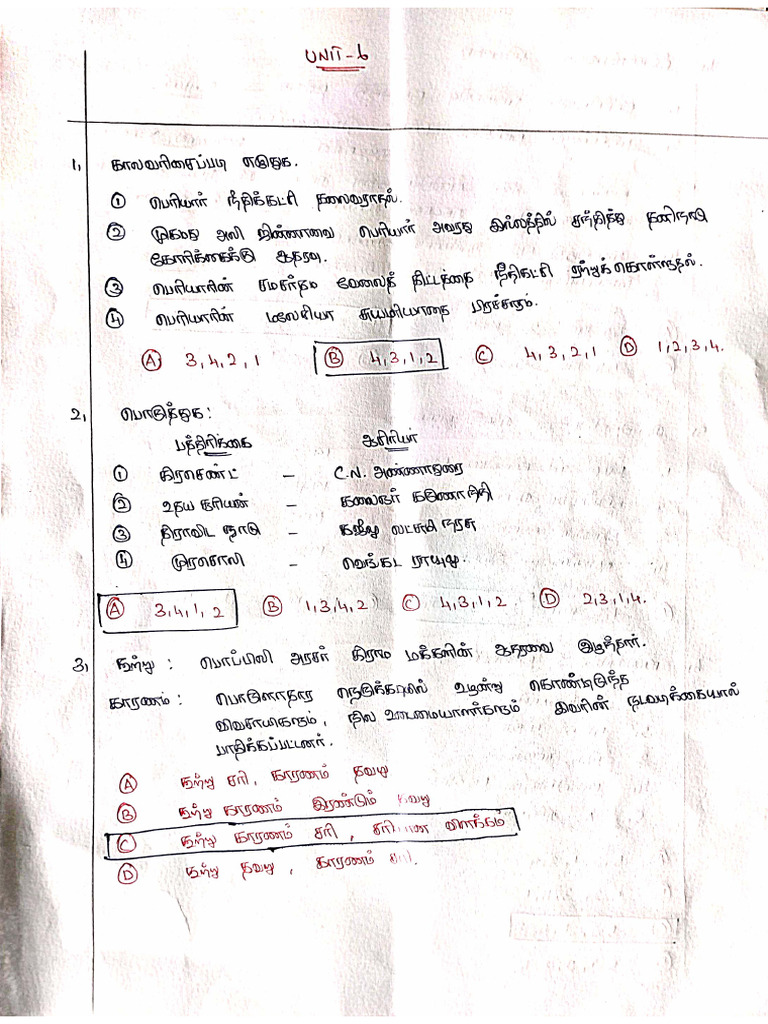 UNIT-6
1, காலவரிசைப்படி எழுதுக.
① பெரியார் நீதிக்கட்சி தலைவராதல்.
② முகமது அலி ஜின்னாவை பெரியார் அவரது இல்லத்தில் சந்தித்து தனிநாடு
கோரிக்கைக்கு ஆதரவு.
③ பெரியாரின் சமதர்ம வேலைத் திட்டத்தை நீதிகட்சி ஏற்றுக் கொள்ளுதல்.
④ பெரியாரின் மலேசியா சுயமரியாதை பிரச்சாரம்.
Ⓐ 3,4,2,1 Ⓑ 4,3,1,2 Ⓒ 4,3,2,1 Ⓓ 1,2,3,4.
2, பொருத்துக:
பத்திரிக்கை ஆசிரியர்
① திராசெண்ட் – C.N. அண்ணாதுரை
② உதய சூரியன் – கலைஞர் கருணாநிதி
③ திராவிட நாடு – கஜலு லட்சுமி நரசு
④ முரசொலி – வெங்கட ராயுலு.
Ⓐ 3,4,1,2 Ⓑ 1,3,4,2 Ⓒ 4,3,1,2 Ⓓ 2,3,1,4.
3, கூற்று: பொப்பிலி அரசர் கிராம மக்களின் ஆதரவை இழந்தார்.
காரணம்: பொருளாதார நெருக்கடியில் உழன்று கொண்டிருந்த
விவசாயிகளும், நில உடமையாளர்களும் இவரின் நடவடிக்கையால்
பாதிக்கப்பட்டனர்.
Ⓐ கூற்று சரி, காரணம் தவறு
Ⓑ கூற்று காரணம் இரண்டும் தவறு
Ⓒ கூற்று காரணம் சரி, சரியான விளக்கம்
Ⓓ கூற்று தவறு, காரணம் சரி.